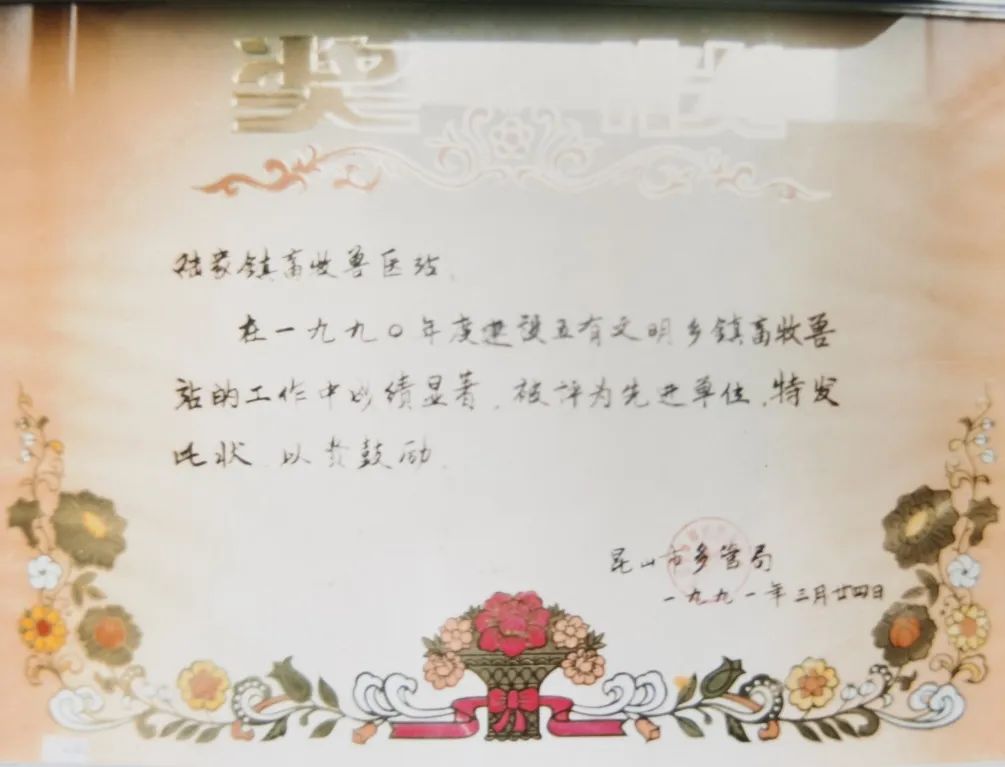 奖 状
陆家镇畜牧兽医站.
在一九九〇年度建设五有文明乡镇畜牧兽
站的工作中成绩显著,被评为先进单位,特发
此状 以资鼓励.
昆山市多管局
一九九一年三月廿四日